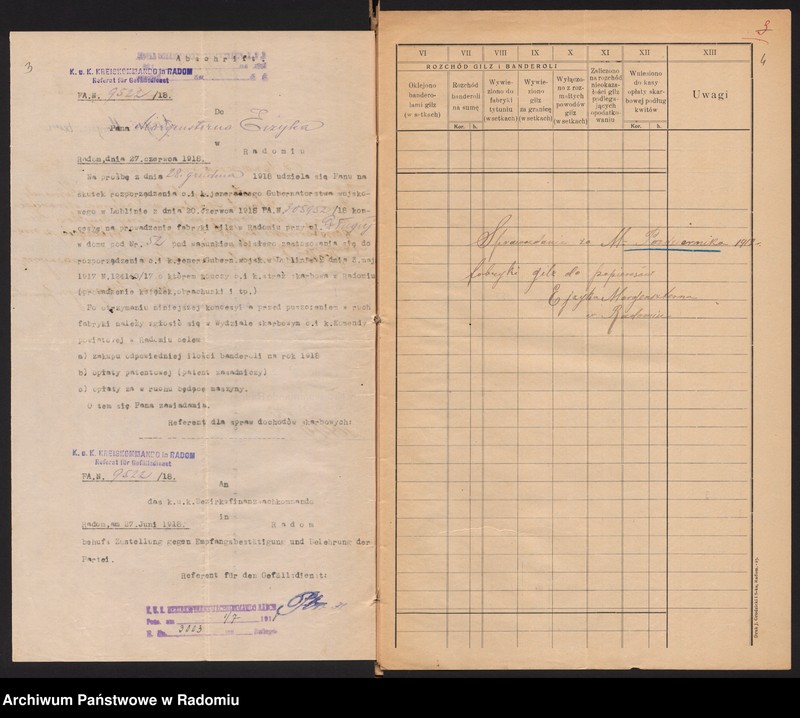 3
Abschrift.
K. u. K. KREISKOMMANDO in RADOM
Referat für Gefällsdienst
FA.N. 9522 /18.
Do
Pana Ejzyka
w
Radomiu
Radom, dnia 27. czerwca 1918.
Na prośbę z dnia grudnia 1918 udziela się Panu na
skutek rozporządzenia c.i k. jenerałnego Gubernatorstwa wojsko-
wego w Lublinie z dnia 20. czerwca 1918 FA.N. /18 kon-
cesyę na prowadzenie fabryki gilz w Radomiu przy ul.
w domu pod Nr. 52 pod warunkiem ścisłego zastosowania się do
rozporządzenia c.i k. jener. Gubern. wojsk. w Lublinie z dnia 2. maja
1917 N. /17 o którem pouczy c.i k. straż skarbowa w Radomiu
(prowadzenie książek, obrachunki i t.)
Po otrzymaniu niniejszej koncesyi a przed puszczeniem w ruch
fabryki należy zgłosić się w wydziale skarbowym c.i k. Komendy
powiatowej w Radomiu celem
a) zakupu odpowiedniej ilości banderoli na rok 1918
b) opłaty patentowej (patent zasadniczy)
c) opłaty za w ruchu będące maszyny.
O tem się Pana zawiadamia.
Referent dla spraw dochodów skarbowych:
K. u. K. KREISKOMMANDO in RADOM
Referat für Gefällsdienst
FA.N. 9522 /18.
An
das k.u.k. Bezirksfinanzwachkommando
in
Radom
Radom, am 27. Juni 1918.
behufs Zustellung gegen Empfangsbestätigung und Belehrung der
Partei.
Referent für den Gefällsdienst:
RADOM
Präs. am 4/7 191
N. 3003
3
4
VI VII VIII IX X XI XII XIII
ROZCHÓD GILZ I BANDEROLI
Oklejono banderolami gilz (w setkach)
Rozchód banderoli na sumę
Wywieziono do fabryki tytuniu (w setkach)
Wywieziono gilz za granicę (w setkach)
Wyłączono z rozmaitych powodów gilz (w setkach)
Zaliczono na rozchód nieokazałości gilz podlegających opodatkowaniu
Wniesiono do kasy opłaty skarbowej podług kwitów
Uwagi
Kor. h. Kor. h.
Sprawdzano za M. Październik 191
fabryki gilz do papierosów
Ejzyka
w Radomiu